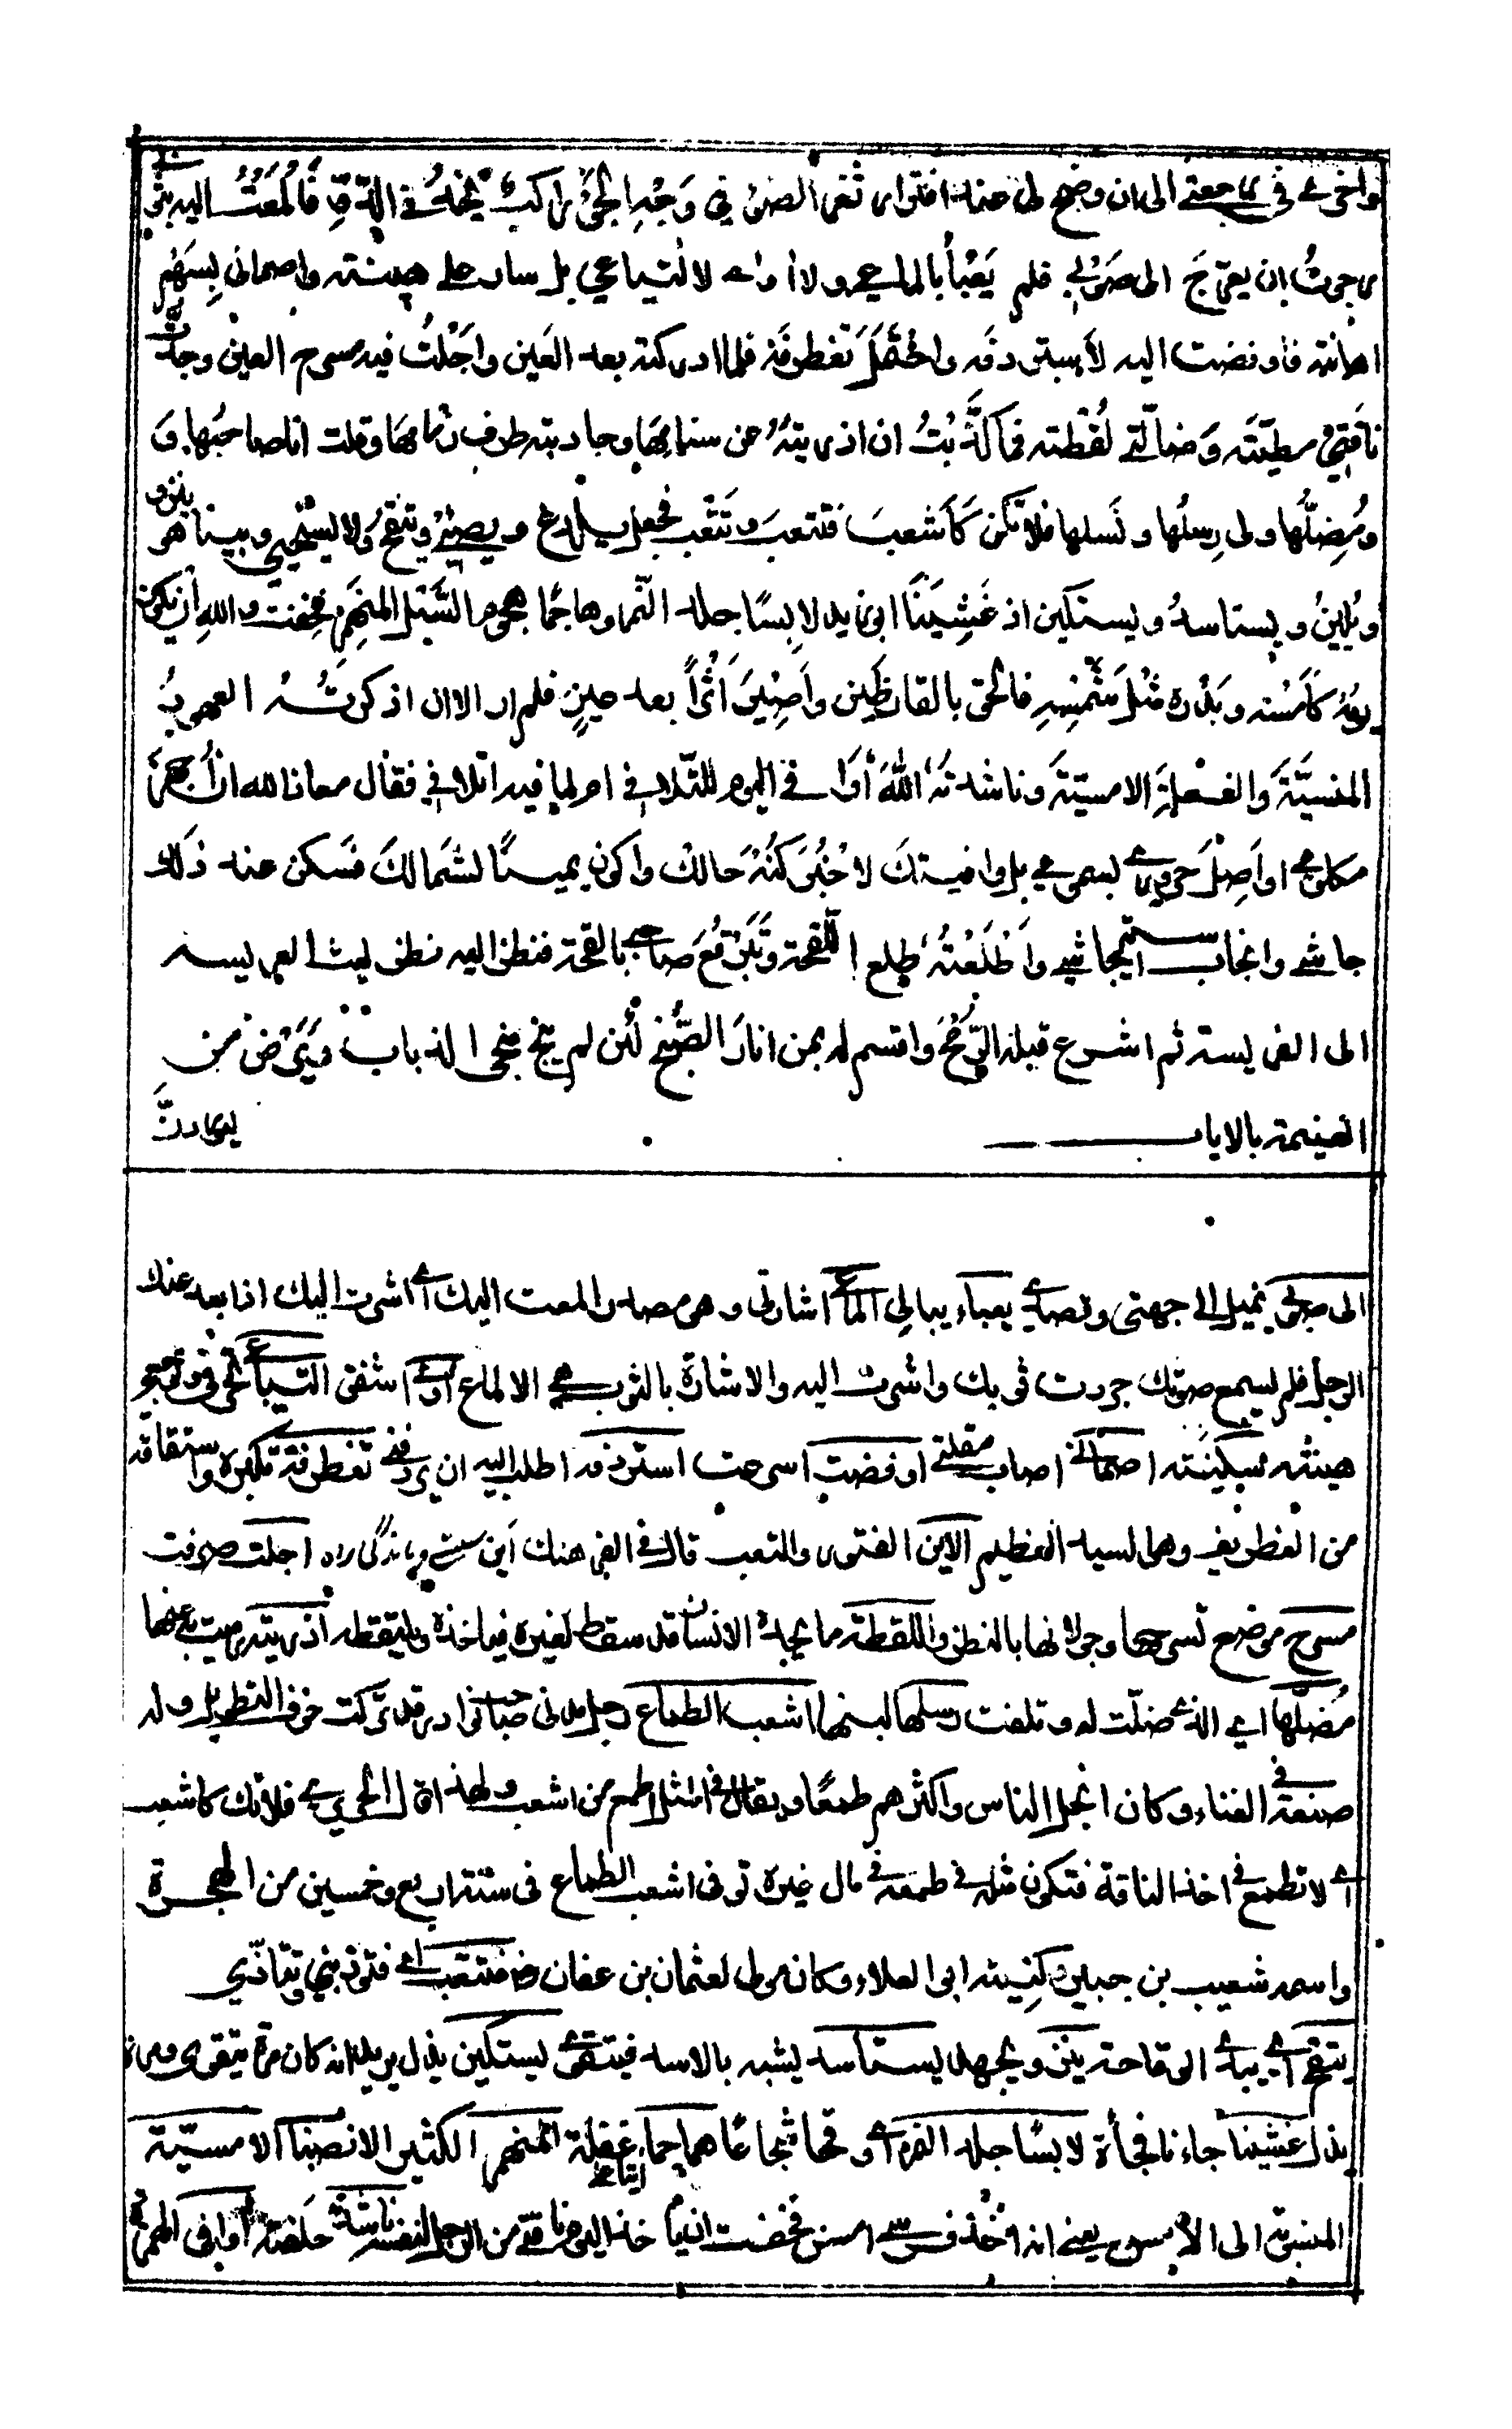 واخرى في مراجعتي الى ان وضح لى عند افترار ثغر الضوء في وَجْهِ الجوّ راكب يَخِدُ في الدَّوِّ فَاَلْمَعْتُ اليه بثوبي
ورجوتُ ان يعرّجَ الى صَوْبي فلم يَعْبَأْ بالماعي ولا اوى لالتياعي بل سار على هينته واصماني بِسَهْم
اهانته فاوفضت اليه لاَستردفَه واحْتَمِلَ تغطرفَه فلما ادركته بعد العَين واَجَلْتُ فيه مسرح العين وجدتُّ
ناقتي مطيّتَه وَضالّتي لُقْطته فما كذّبْتُ ان اذريتهُ عن سنامها وجاذبته طرف زمامها وقلت انا صاحبُها وَ
ومُضِلُّها ولى رِسلُها ونَسلها فلا تكن كَاَشعبَ فتتعبَ وتُتْعِب فجعل يلدغ ويصئِ ويتّقحُ ولا يستحيى وبينا هو ينزو
ويلينُ ويستاسدُ ويستكين اذ غَشِيَنَا ابو زيد لابِسًا جلد النّمر وهاجمًا هجوم السَّيل المنهَمِر فخفت والله ان يكون
يومُهُ كاَمسِه وبَدْره مثلَ شمْسِه فالحق بالقارظَين واَصِيْرَ اَثَراً بعد عينٍ فلم ار الا ان اذكرتُهُ العهودَ
المنسيَّةَ والفعلةَ الامسيّةَ وناشدتهُ اللهَ أَوَافى اليوم للتّلافى ام لما فيه اتلافى فقال معاذ الله ان اُجهزَ
مكلومي او اَصِلَ حرورى بسمومي بل وافيتك لاخْبُرَ كُنْهَ حالك واكون يمينًا لشمالك فسكن عند ذلك
جاشى وانجاب استيحاشى واَطْلَعْتُهُ طِلع اللقحة وتَبَرْقُعَ صاحبي بالقحة فنظر اليه نظر ليث العريسه
الى الفريسة ثم اشرع قبله الرُّمْحَ واقسم له بمن انار الصُّبْحَ لئن لم ينج منجى الذباب ويَرْضَ من
الغنيمة بالاياب
ليوردنَّ
الى صوبى يميل الى جهتى وقصدى يعباء يبالى الماعى اشارتى وهى مصدر المعت اليك اى اشرت اليك اذا بعد عنك
الرجل فلم يسمع صوتك جردت ثوبك واشرت اليه والاشارة بالثوب هى الالماع اوى اشفق التياعى تحرقى وتوجعى
هينته سكينته اصمانى اصاب مقتلى اوفضت اسرعت استردفه اطلب اليه ان يردفنى تغطرفه تكبره واشتقاقه
من الغطريف وهو السيد العظيم الاين الفتور والتعب قال فى الفرهنك اَين سستى وماندگى راه اجلت صرفت
مسرح موضع تسرحها وجولانها بالنظر واللقطة ما يجده الانسان قد سقط لغيره فياخذه ويلتقطه اذريته رميت به عنها
مُضلّها اى الذى ضلّت له وتلفت رسلها لبنها اشعب الطماع رجل مدنى صاحب نوادر قد تركت خوف التطويل وله
صنعة فى الغناء وكان ابخل الناس واكثرهم طمعًا ويقال فى المثل اطمع من اشعب ولهذا قال الحريرى فلا تك كاشعب
اى لا تطمع فى اخذ الناقة فتكون مثله فى طمعه فى مال غيره توفى اشعب الطماع فى سنة اربع وخمسين من الهجرة
واسمه شعيب بن جبير وكنيته ابو العلاء وكان مولى لعثمان بن عفان رض فتتعب اى فتوذينى وتتاذّى
يتّقح اى يبدى الوقاحة ينزو يجهل يستاسد يشبه بالاسد فيتقوى يستكين يذل يريد انه كان مرة يتقوى ومرة
يذل غشينا جاءنا فجأة لابسًا جلد النمر اى وقحا شجاعًا هاجما غفلة المنهمر الكثير الانصباب الامسيّة
المنسوبة الى الامس يعنى انه اخذ فرسى امس فخفت ان ياخذ اليوم ناقتى من الرجل لنفسه ناشدته حلفته اوافى الهمزة